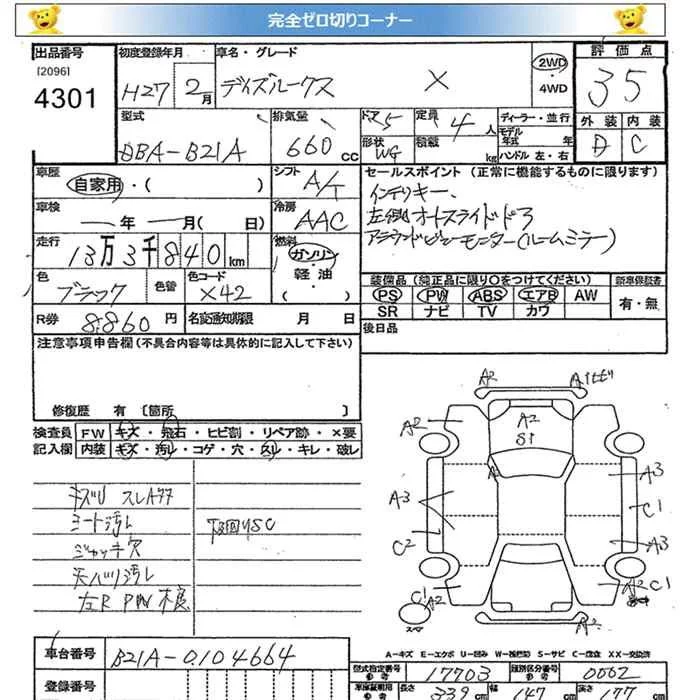 完全ゼロ切りコーナー
出品番号 初度登録年月 車名・グレード 評価点
[2096] H27 2月 デイズルークス X 2WD・4WD 35
4301
型式 排気量 ドア 5 定員 4人 ディーラー・並行 外装 内装
DBA-B21A 660cc 形状 WG 積載 kg モデル年式 年 D C
ハンドル 左・右
車歴 シフト セールスポイント (正常に機能するものに限ります)
自家用・( ) A/T インテリキー、
車検 冷房 左側オートスライドドア
年 月( 日) AAC アラウンドビューモニター(ルームミラー)
走行 燃料
13万3千840km ガソリン・軽油・
色 色替 色コード 装備品 (純正品に限り〇をつけてください) 新車保証書
ブラック X42 PS PW ABS エアB AW 有・無
SR ナビ TV カワ
R券 8,860円 名変通知期限 月 日 後日品
注意事項申告欄 (不具合内容等は具体的に記入して下さい)
修復歴 有 〔箇所 〕
検査員 FW キズ・飛石・ヒビ割・リペア跡・×要
記入欄 内装 キズ・汚レ・コゲ・穴・スレ・キレ・破レ
A2 A1
A2 A2 S1
A3 A3 C1
C2 A3
C1 A2 A2 C1
スペア A2
シート汚レ
下回りSC
ジャッキ欠
天バリ汚レ
左R PW 不良
A-キズ E-エクボ U-凹み W-補修跡 S-サビ C-腐食 XX-交換済
車台番号 B21A-0104664
型式指定番号 参考 17703 類別区分番号 参考 0002
登録番号
車庫証明用 参考 長さ 339cm 幅 147cm 高さ 177cm